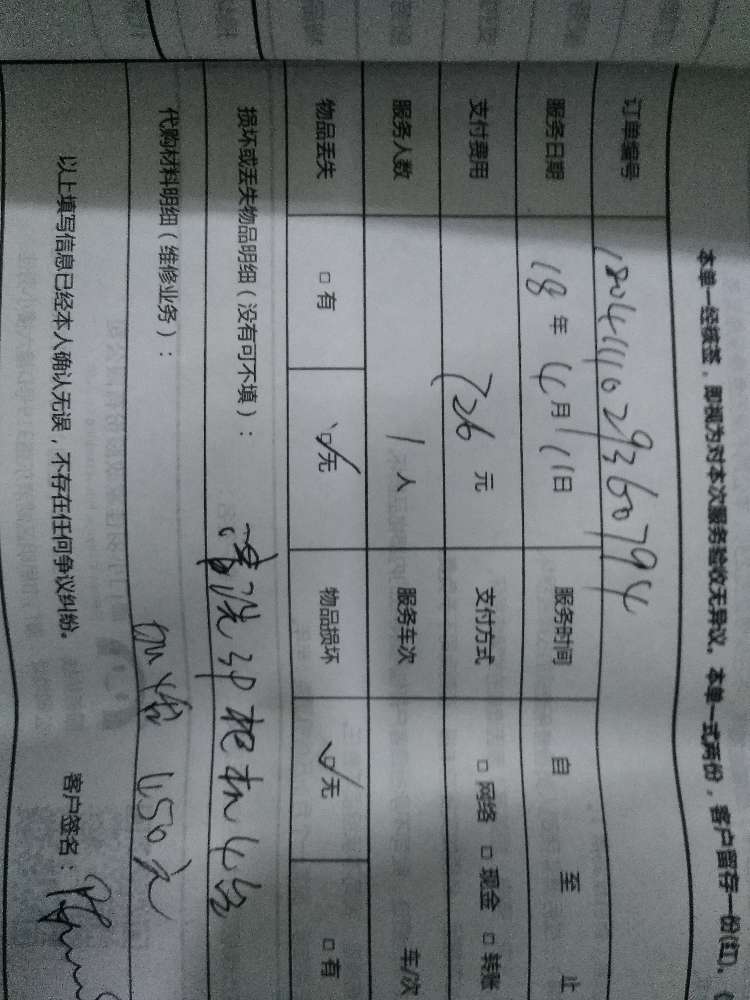 本单一经核签，即视为对本次服务验收无异议。本单一式两份，客户留存一份(红)、
订单编号 180411029360794
服务日期 18 年 4 月 11 日 服务时间 自 至 止
支付费用 726 元 支付方式 □ 网络 □ 现金 □ 转账
服务人数 1 人 服务车次 车/次
物品丢失 □ 有 ☑ 无 物品损坏 ☑ 无 □ 有
损坏或丢失物品明细（没有可不填）： 清洗 机 4台
代购材料明细（维修业务）： 150元
以上填写信息已经本人确认无误，不存在任何争议纠纷。 客户签名：